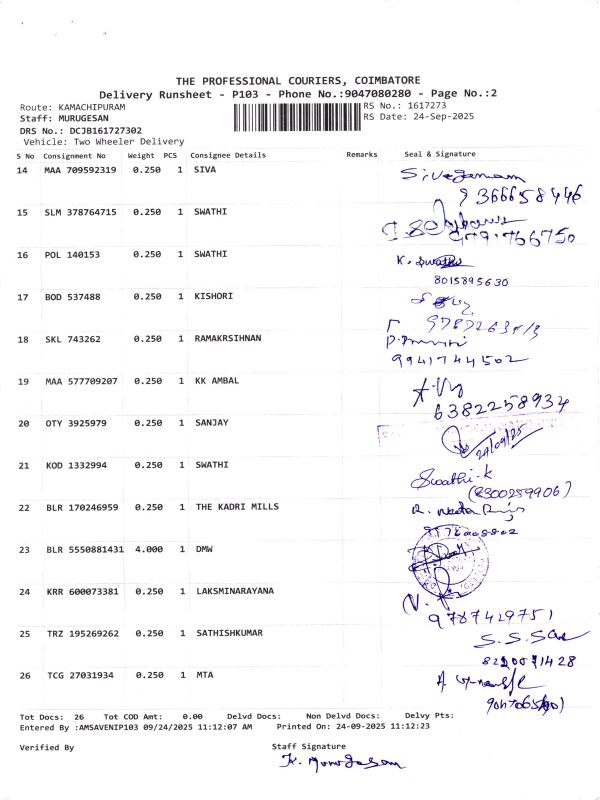 THE PROFESSIONAL COURIERS, COIMBATORE
Delivery Runsheet - P103 - Phone No.:9047080280 - Page No.:2
Route: KAMACHIPURAM
RS No.: 1617273
Staff: MURUGESAN
RS Date: 24-Sep-2025
DRS No.: DCJB161727302
Vehicle: Two Wheeler Delivery
S No Consignment No Weight PCS Consignee Details Remarks Seal & Signature
14 MAA 709592319 0.250 1 SIVA
9366658446
15 SLM 378764715 0.250 1 SWATHI
16 POL 140153 0.250 1 SWATHI K. Swathi
8015895630
17 BOD 537488 0.250 1 KISHORI
18 SKL 743262 0.250 1 RAMAKRSIHNAN
9941744502
19 MAA 577709207 0.250 1 KK AMBAL
6382258934
20 OTY 3925979 0.250 1 SANJAY
24/09/25
21 KOD 1332994 0.250 1 SWATHI Swathi-k
22 BLR 170246959 0.250 1 THE KADRI MILLS
23 BLR 5550881431 4.000 1 DMW
24 KRR 600073381 0.250 1 LAKSMINARAYANA
9787429751
25 TRZ 195269262 0.250 1 SATHISHKUMAR
26 TCG 27031934 0.250 1 MTA
Tot Docs: 26 Tot COD Amt: 0.00 Delvd Docs: Non Delvd Docs: Delvy Pts:
Entered By :AMSAVENIP103 09/24/2025 11:12:07 AM Printed On: 24-09-2025 11:12:23
Verified By Staff Signature
K. Murugesan